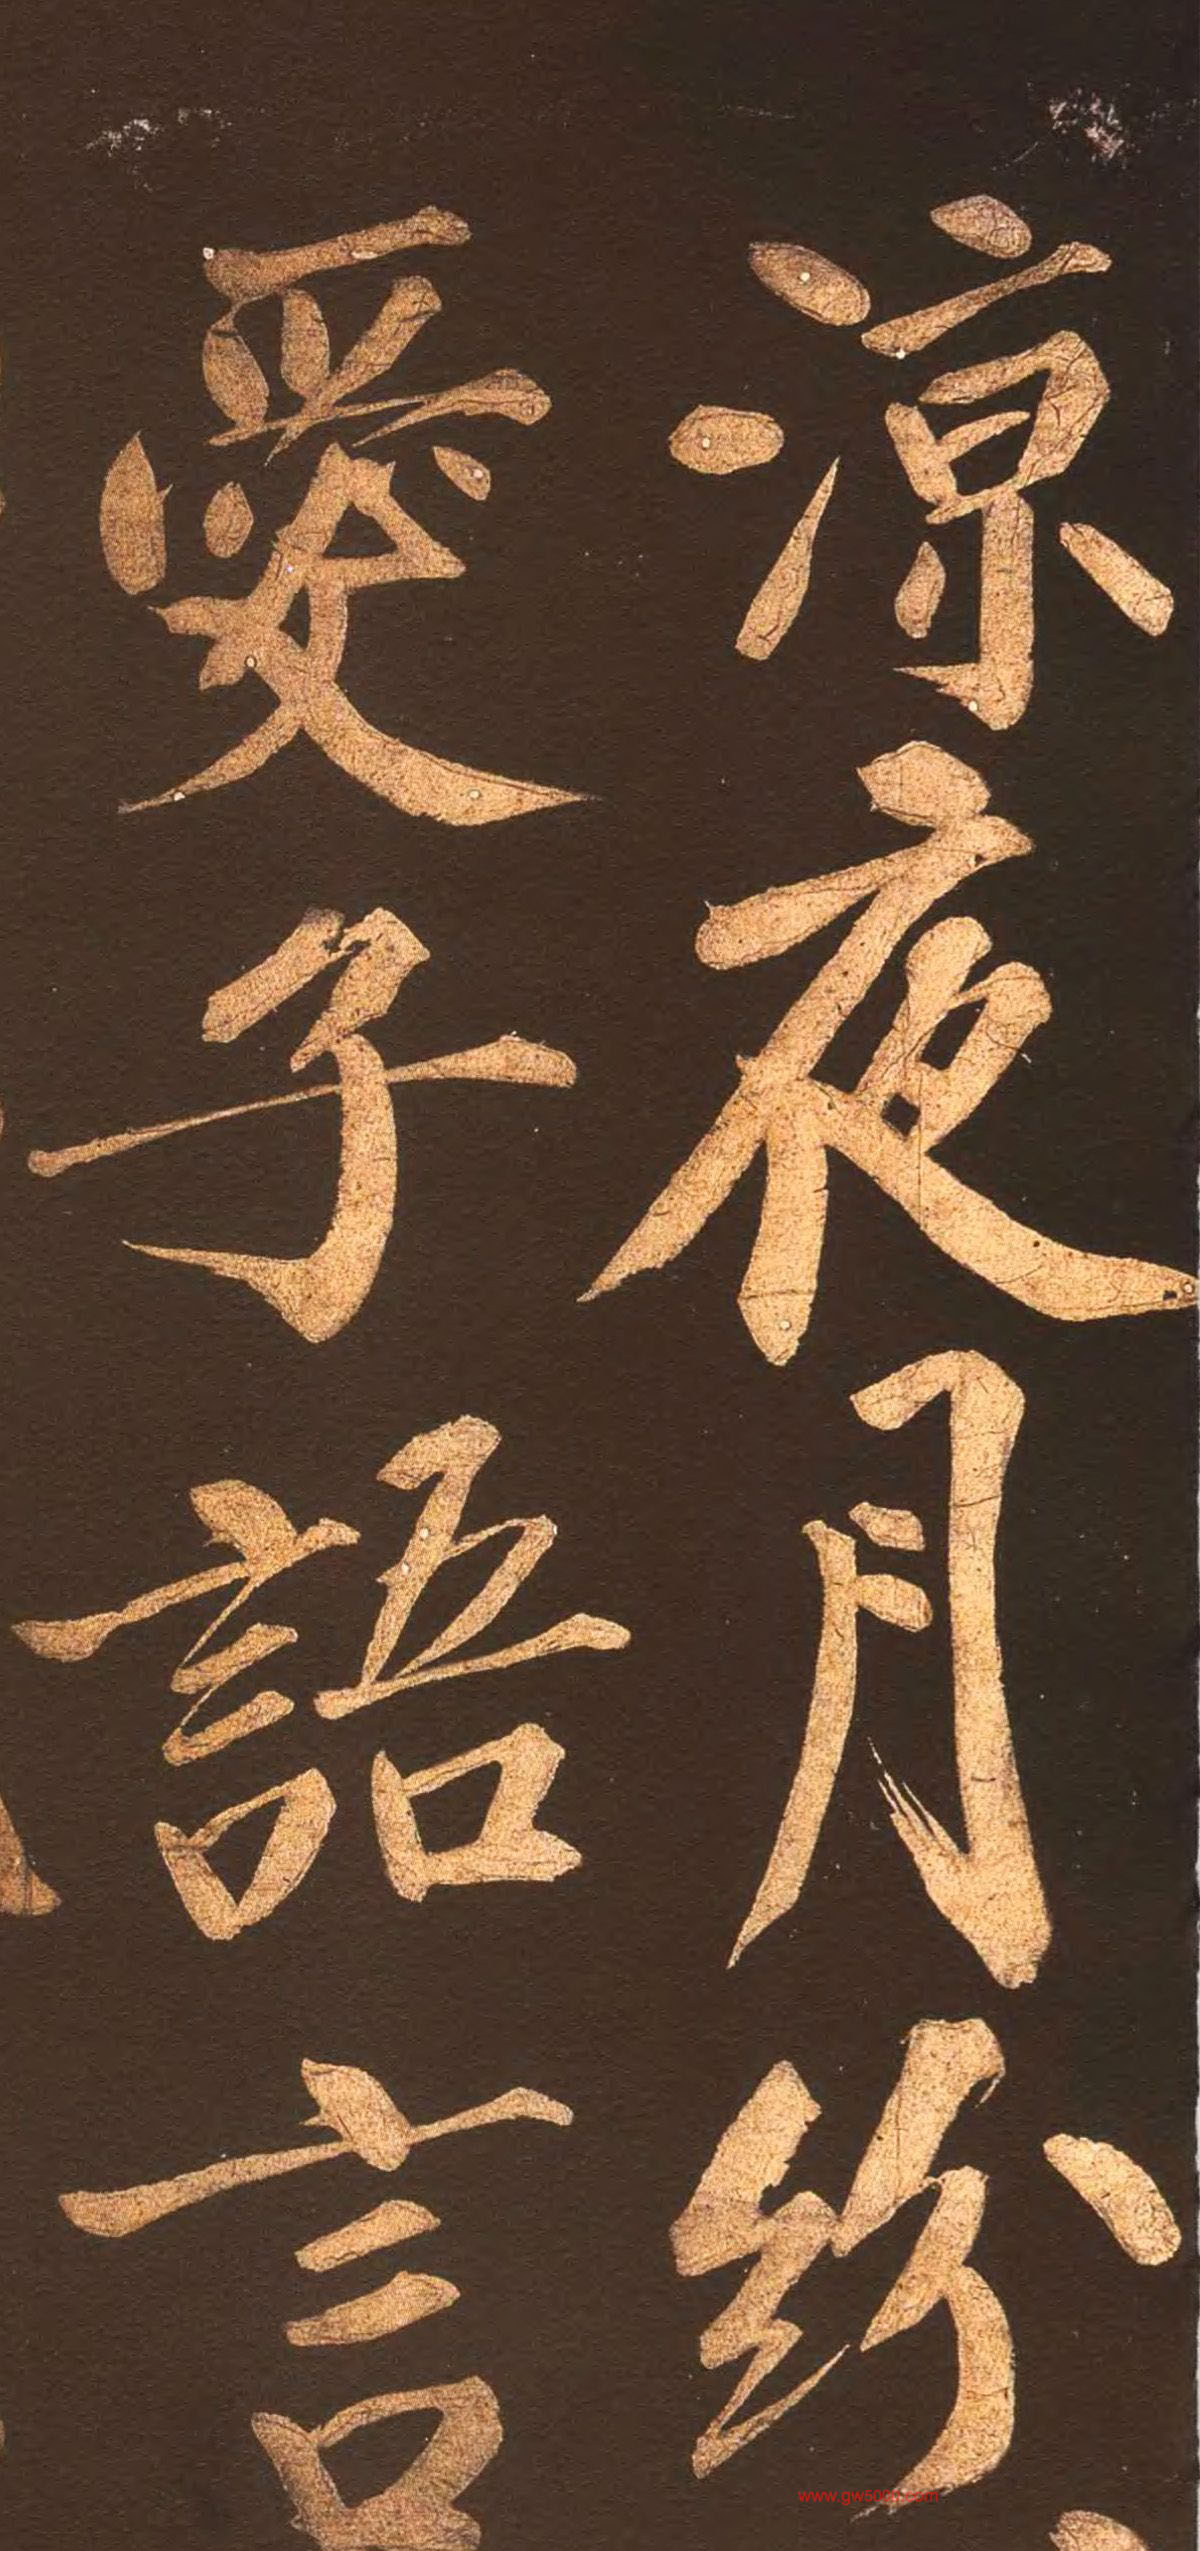 凉夜月紛
愛子語言
www.gw500g.com